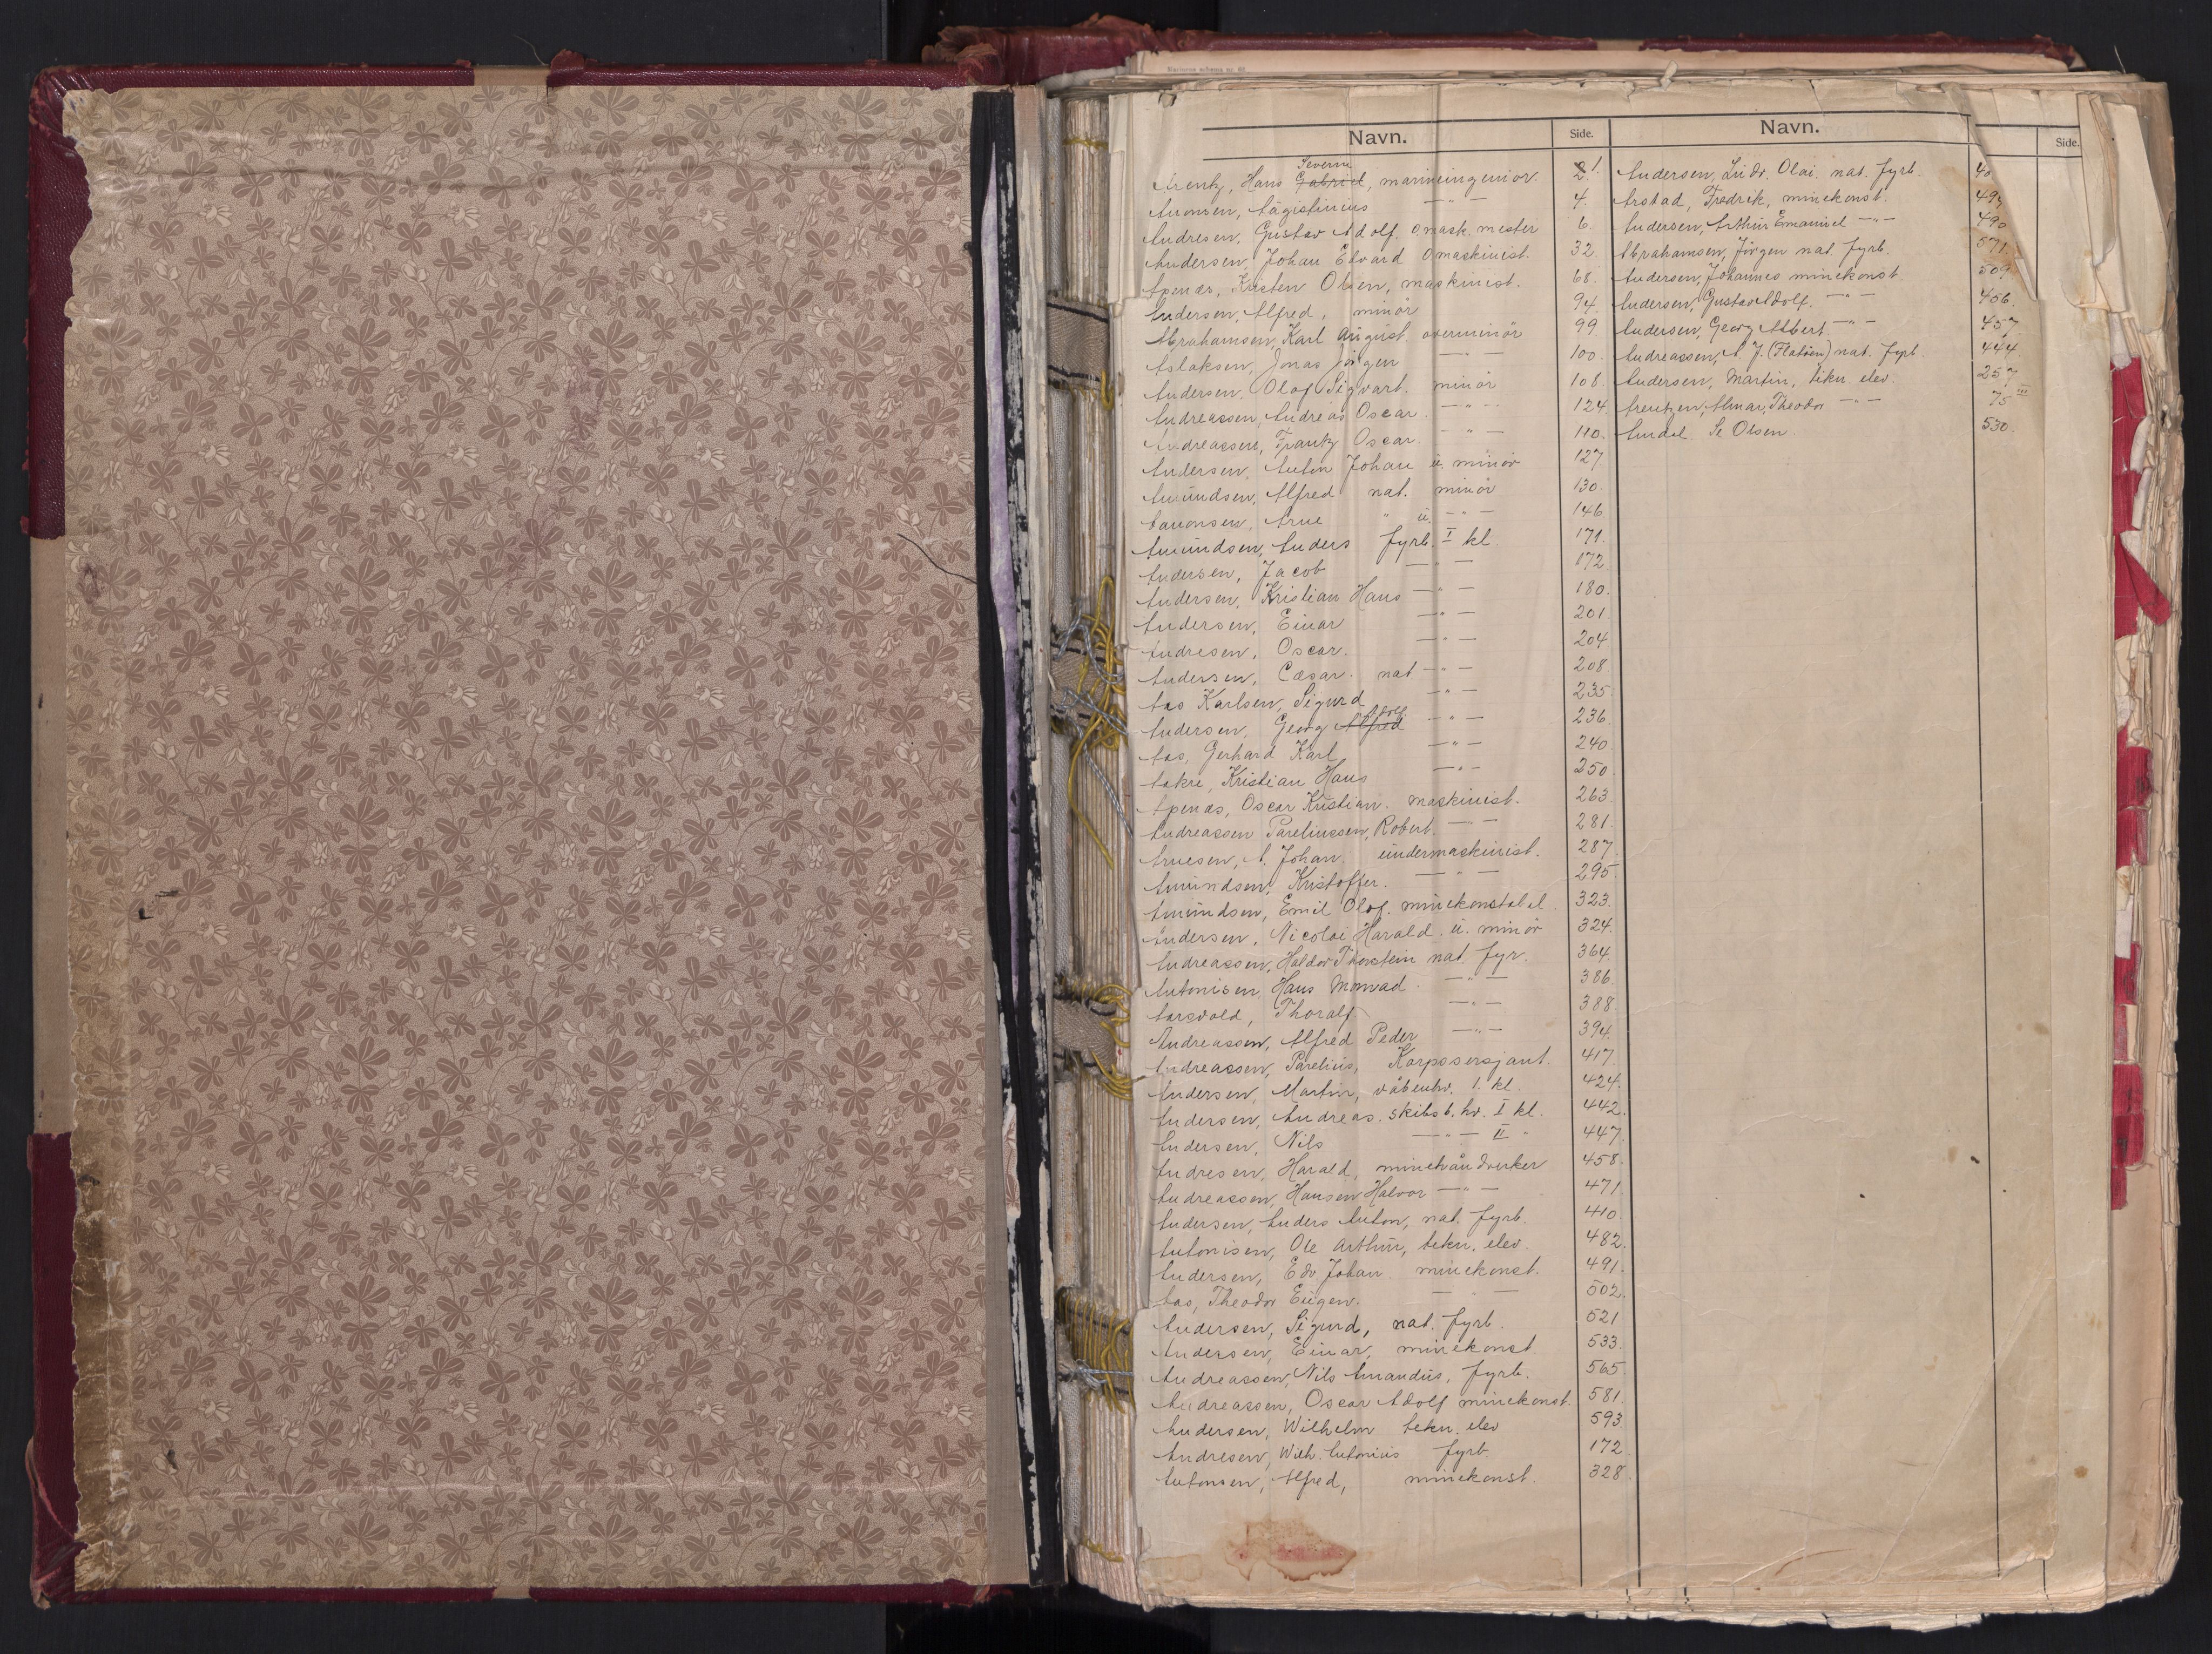 Marinens schema nr. 62
Navn. Side.
Arentz, Hans Gabriel Severin, marineingeniør. 2 1.
Aronsen, Aagistinius — " — 4.
Andresen, Gustav Adolf. o mask. mester 6.
Andersen, Johan Edvard o maskinist. 32.
Apenæs, Kristen Olsen, maskinist. 68.
Andersen, Alfred, minör 94.
Abrahamsen, Karl August overminör 99.
Aslaksen, Jonas Jörgen — " — 100.
Andersen, Olaf Sigvart. minör 108.
Andreassen, Andreas Oscar. — " — 124.
Andreassen, Frantz Oscar. — " — 110.
Andersen, Anton Johan u. minör 127.
Amundsen, Alfred nat. minör 130.
Aanonsen, Arne " u. — " — 146.
Amundsen, Anders Fyrb. I kl. 171.
Andersen, Jacob — " — 172.
Andersen, Kristian Hans — " — 180.
Andersen, Einar — " — 201.
Andresen, Oscar. — " — 204
Andersen, Cæsar. nat — " — 208
Aas Karlsen, Sigurd — " — 235.
Andersen, Georg Alfred Adolf — " — 236.
Aas, Gerhard Karl — " — 240.
Aakre, Kristian Hans — " — 250.
Apenæs, Oscar Kristian. maskinist. 263.
Andreassen Pareliussen, Robert. — " — 281.
Arnesen, A. Johan. undermaskinist. 287.
Amundsen, Kristoffer. — " — 295.
Amundsen, Emil Olaf. minekonstabel 323.
Andersen, Nicolai Harald. u. minör 324.
Andreassen, Haldor Thorstein nat. Fyr. 364.
Antonisen, Hans Monrad. — " — 386.
Aarsvold, Thoralf — " — 388.
Andreassen, Alfred Peder — " — 394.
Andreassen, Parelius, Korpssersjant. 417.
Andersen, Martin, våbenhv. 1. kl. 424.
Andersen, Andreas. skibsb. hv. I kl. 442.
Andersen, Nils — " — II " 447.
Andresen, Harald, minehåndverker 458.
Andreassen, Hansen Halvor — " — 471.
Andersen, Anders Anton, nat. Fyrb. 410.
Antonisen, Ole Arthur, tekn. elev. 482.
Andersen, Edv. Johan. minekonst. 491.
Aas, Theodor Eugen. — " — 502.
Andersen, Sigurd, nat. Fyrb. 521
Andersen, Einar, minekonst 533.
Andreassen, Nils Amandus, Fyrb. 565.
Andreassen, Oscar Adolf minekonst. 581.
Andersen, Wilhelm tekn. elev 593
Andresen, Wilh. Antonius Fyrb. 172.
Antonsen, Alfred, minekonst. 328.
Navn. Side.
Andersen, Ludv. Olai. nat. Fyrb. 40
Arstad, Fredrik, minekonst. 494
Andersen, Arthur Emanuel — " — 490
Abrahamsen, Jörgen nat. Fyrb. 571
Andersen, Johannes minekonst. 509
Andersen, Gustav Adolf. — " — 456.
Andersen, Georg Albert. — " — 457
Andreassen, A. J. (Flatöen) nat. Fyrb. 444.
Andersen, Martin, tekn. elev. 257
Arentzen, Almar, Theodor — " — 75 III
Amdal. Se Olsen. 530.